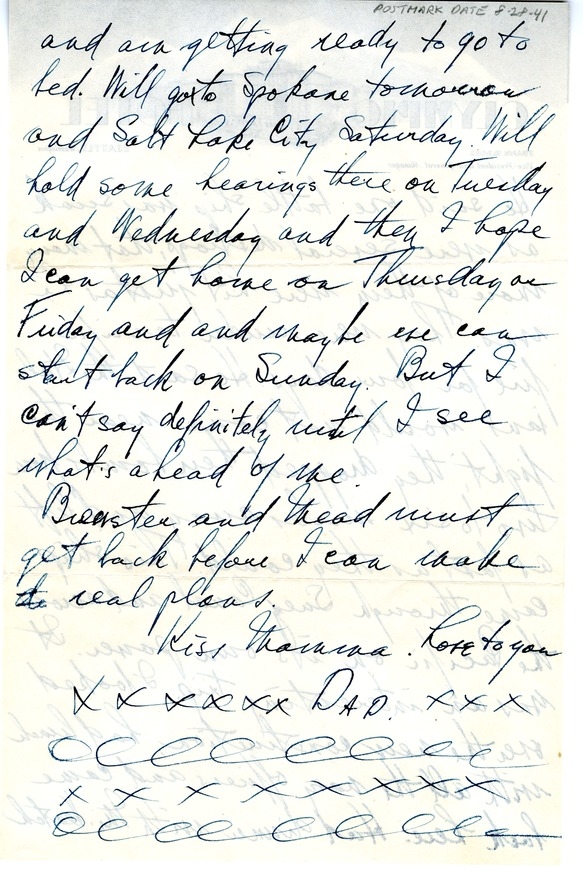 POSTMARK DATE 8-28-41
and am getting ready to go to
bed. Will go to Spokane tomorrow
and Salt Lake City Saturday. Will
hold some hearings there on Tuesday
and Wednesday and then I hope
I can get home on Thursday or
Friday and and maybe we can
start back on Sunday. But I
can't say definitely until I see
what's ahead of me.
Brewster and Mead must
get back before I can make
real plans.
Kiss Mamma. Love to you
X X X X X X X DAD. X X X
OOOOOOOOO
X X X X X X X X X
OOOOOOOOO